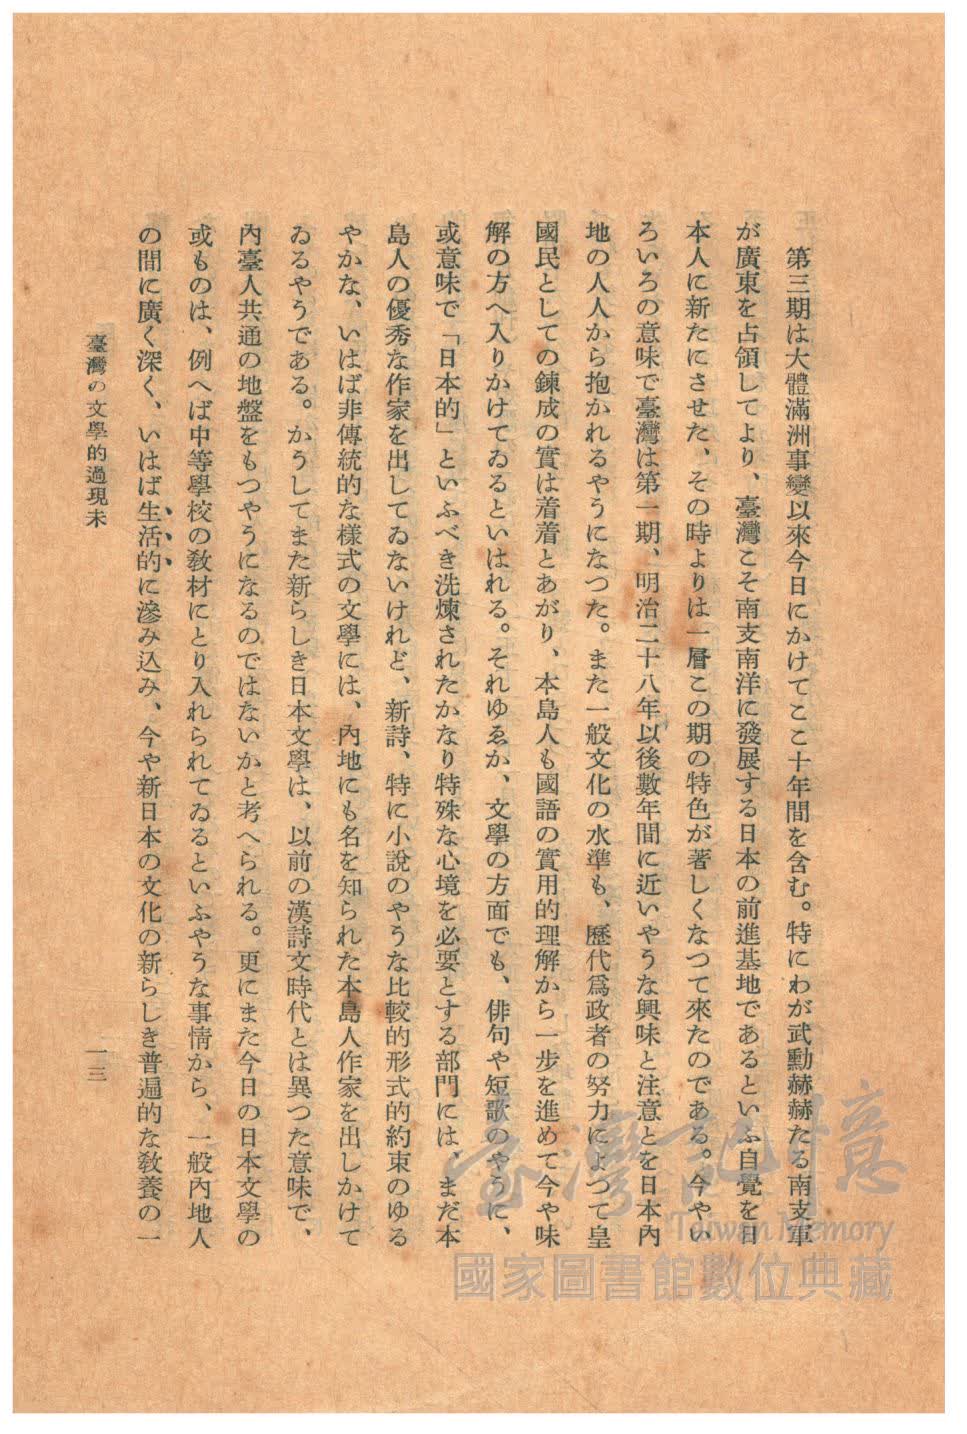 第三期は大體滿洲事變以來今日にかけてここ十年間を含む。特にわが武勳赫赫たる南支軍
が廣東を占領してより、臺灣こそ南支南洋に發展する日本の前進基地であるといふ自覺を日
本人に新たにさせた、その時よりは一層この期の特色が著しくなつて來たのである。今やい
ろいろの意味で臺灣は第一期、明治二十八年以後數年間に近いやうな興味と注意とを日本內
地の人人から抱かれるやうになつた。また一般文化の水準も、歷代爲政者の努力によつて皇
國民としての鍊成の實は着着とあがり、本島人も國語の實用的理解から一步を進めて今や味
解の方へ入りかけてゐるといはれる。それゆゑか、文學の方面でも、俳句や短歌のやうに、
或意味で「日本的」といふべき洗煉されたかなり特殊な心境を必要とする部門には、まだ本
島人の優秀な作家を出してゐないけれど、新詩、特に小說のやうな比較的形式的約束のゆる
やかな、いはば非傳統的な樣式の文學には、內地にも名を知られた本島人作家を出しかけて
ゐるやうである。かうしてまた新らしき日本文學は、以前の漢詩文時代とは異つた意味で、
內臺人共通の地盤をもつやうになるのではないかと考へられる。更にまた今日の日本文學の
或ものは、例へば中等學校の敎材にとり入れられてゐるといふやうな事情から、一般內地人
の間に廣く深く、いはば生活的に滲み込み、今や新日本の文化の新らしき普遍的な敎養の一
臺灣の文學的過現未
一三
臺灣記憶
Taiwan Memory
國家圖書館數位典藏